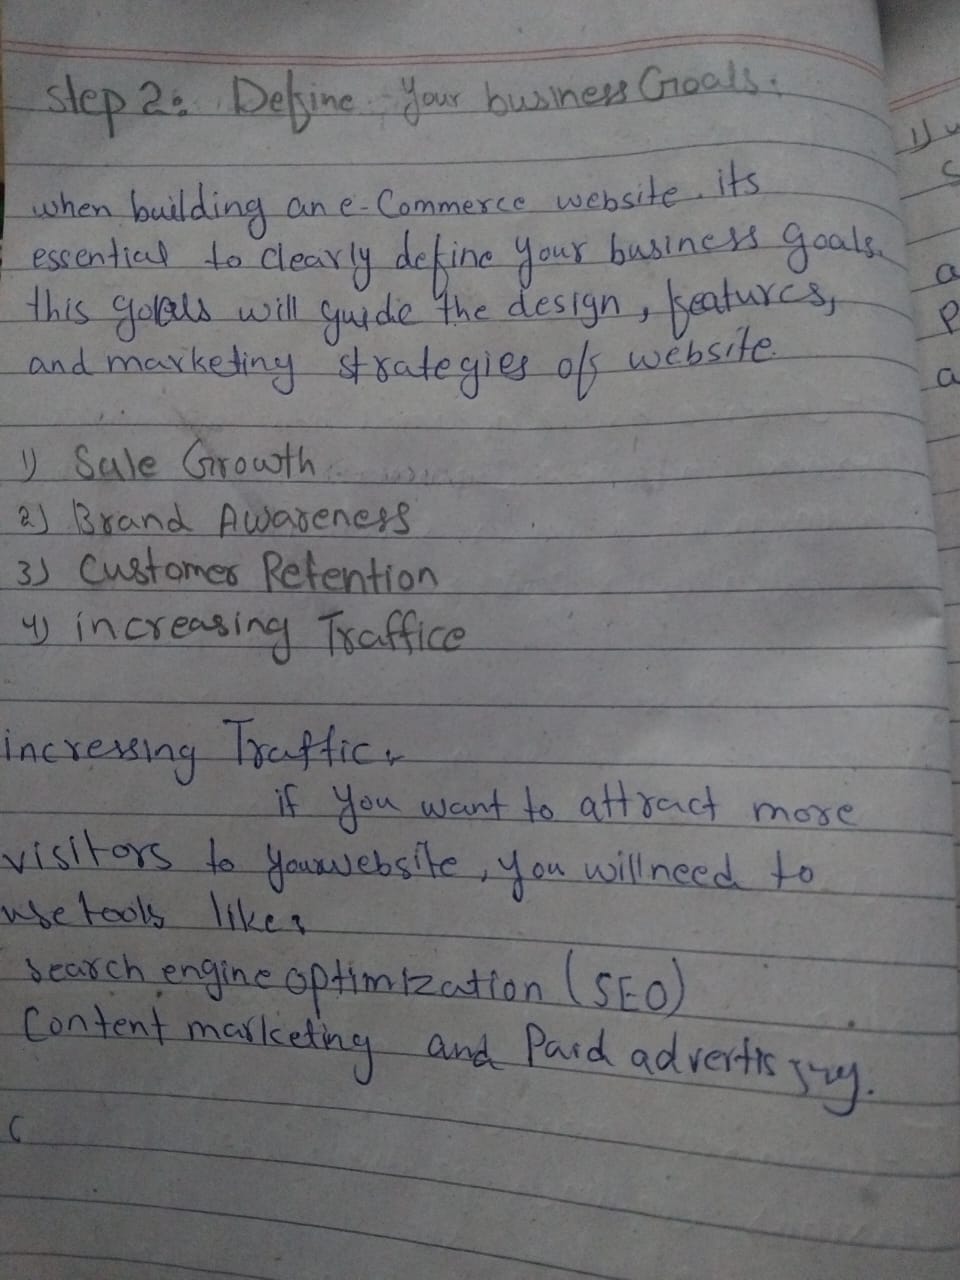 Step 2: Define your business Goals:
when building an e-Commerce website. its
essential to clearly define your business goals.
this goals will guide the design, features,
and marketing strategies of website.
1) Sale Growth
2) Brand Awareness
3) Customer Retention
4) increasing Traffice
incressing Traffic:
if you want to attract more
visitors to your website, you will need to
use tools like:
search engine optimization (SEO)
Content marketing and Paid advertising.